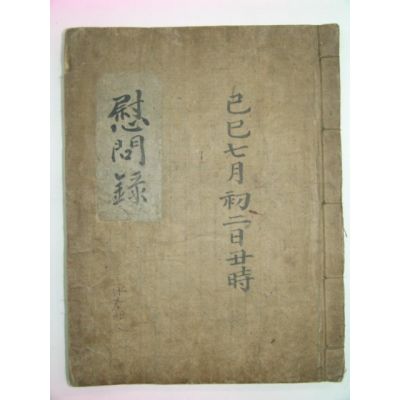 己巳七月初二日丑時
慰問錄